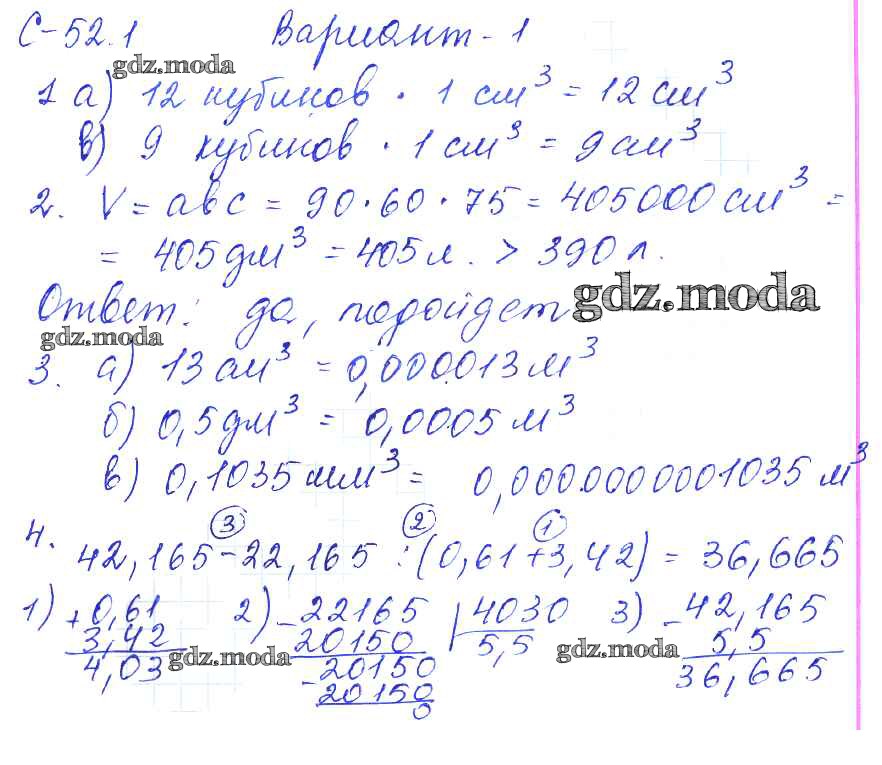 С-52.1 Вариант-1
gdz.moda
1 а) 12 кубиков · 1 см³ = 12 см³
в) 9 кубиков · 1 см³ = 9 см³
2. V = авс = 90 · 60 · 75 = 405000 см³ =
= 405 дм³ = 405 л. > 390 л.
Ответ: да, подойдет
gdz.moda
gdz.moda
3. а) 13 см³ = 0,000013 м³
б) 0,5 дм³ = 0,0005 м³
в) 0,1035 мм³ = 0,0000000001035 м³
③ ② ①
4. 42,165 - 22,165 : (0,61 + 3,42) = 36,665
1) + 0,61 2) - 22165 | 4030 3) - 42,165
3,42 20150 5,5 5,5
4,03 - 20150 36,665
gdz.moda gdz.moda
20150
0